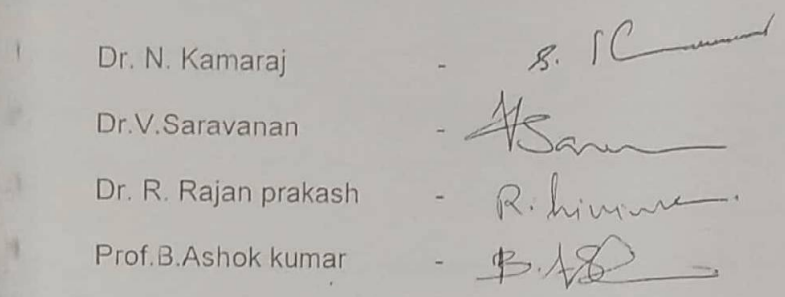 Dr. N. Kamaraj -
Dr.V.Saravanan -
Dr. R. Rajan prakash - R.
Prof.B.Ashok kumar - B.